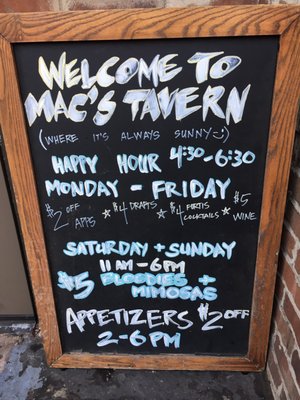 WELCOME TO
MAC'S TAVERN
(WHERE IT'S ALWAYS SUNNY :)
HAPPY HOUR 4:30-6:30
MONDAY - FRIDAY
$2 OFF APPS ☆ $4 DRAFTS ☆ $4 FIRTIS COCKTAILS ☆ $5 WINE
SATURDAY + SUNDAY
11 AM - 6 PM
$5 BLOODIES + MIMOSAS
APPETIZERS $2 OFF
2-6PM